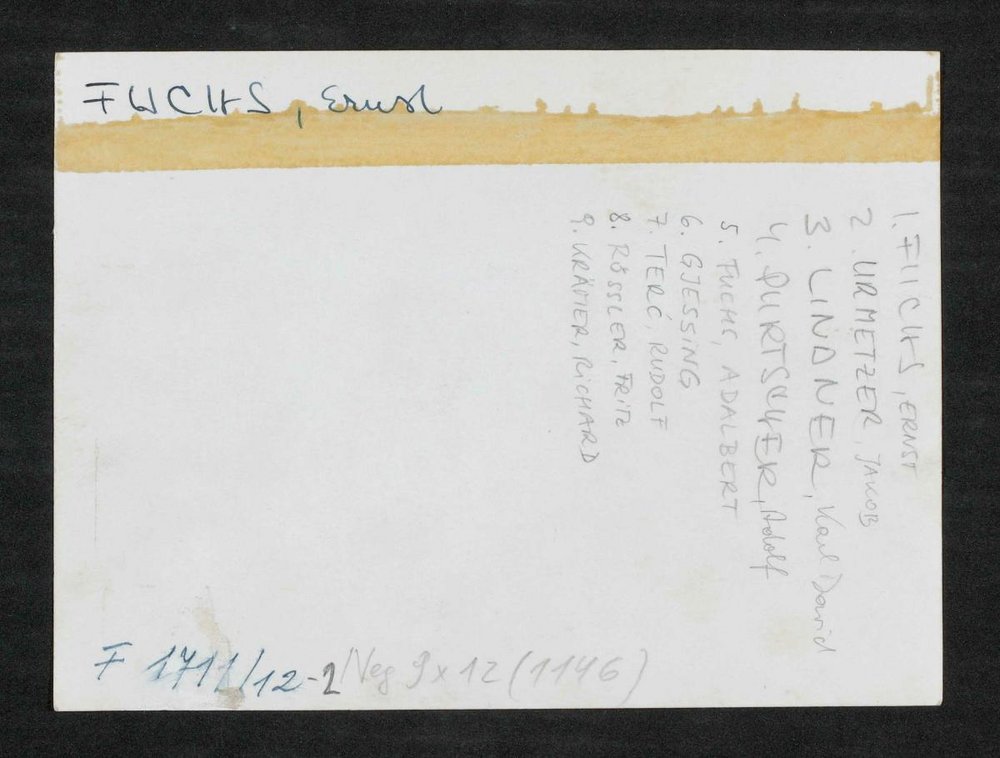 FUCHS, Ernst
1. FUCHS, ERNST
2. URMETZER, JAKOB
3. LINDNER, Karl David
4. PURTSCHER, Adolf
5. FUCHS, ADALBERT
6. GJESSING
7. TERČ, RUDOLF
8. RÖSSLER, FRITZ
9. KRÄMER, RICHARD
F 1711/12-2 /Neg 9x12 (1146)